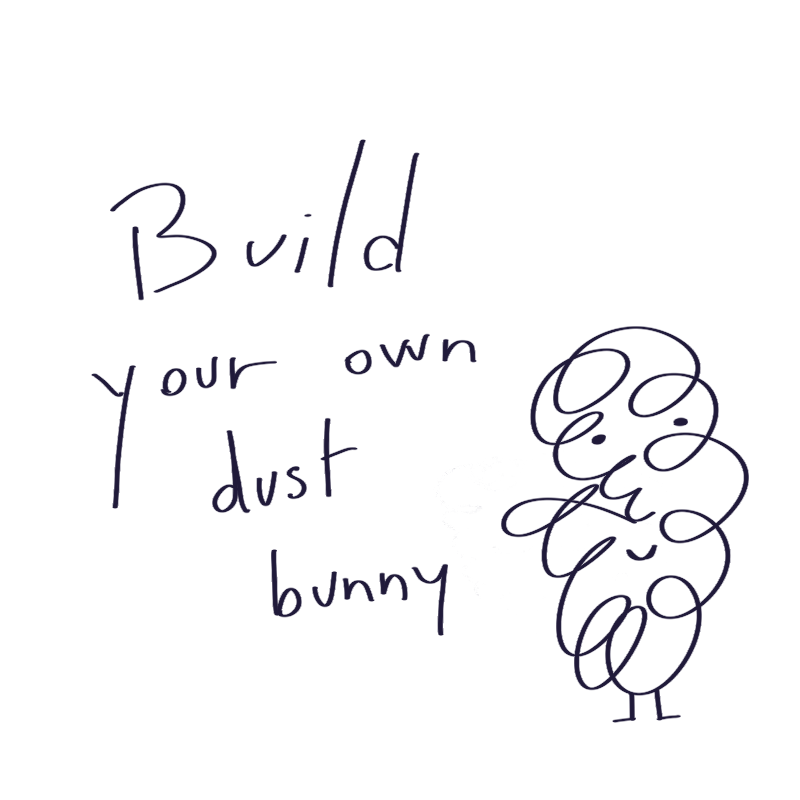 Build
your own
dust
bunny